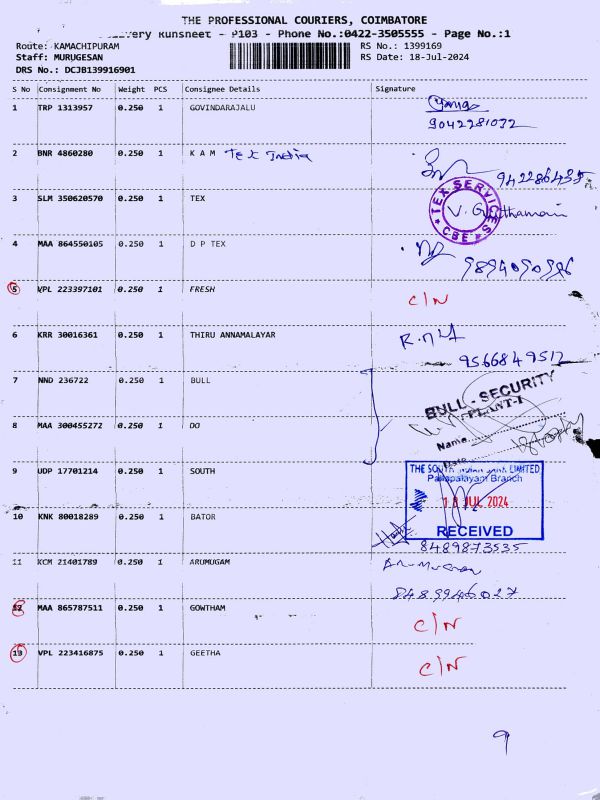 THE PROFESSIONAL COURIERS, COIMBATORE
Runsheet - P103 - Phone No.:0422-3505555 - Page No.:1
Route: KAMACHIPURAM RS No.: 1399169
Staff: MURUGESAN RS Date: 18-Jul-2024
DRS No.: DCJB139916901
S No Consignment No Weight PCS Consignee Details Signature
1 TRP 1313957 0.250 1 GOVINDARAJALU
9042281032
2 BNR 4860280 0.250 1 K A M Tex India
9422864335
3 SLM 350620570 0.250 1 TEX
TEX SERVICE
CBE
4 MAA 864550105 0.250 1 D P TEX
9894090996
5 VPL 223397101 0.250 1 FRESH C/N
6 KRR 30016361 0.250 1 THIRU ANNAMALAYAR
9566849512
7 NND 236722 0.250 1 BULL
BULL - SECURITY
PLANT-I
8 MAA 300455272 0.250 1 DO
Name
Date
9 UDP 17701214 0.250 1 SOUTH
THE SOUTH INDIAN BANK LIMITED
Pallapalayam Branch
18 JUL 2024
10 KNK 80018289 0.250 1 BATOR
RECEIVED
8489873535
11 KCM 21401789 0.250 1 ARUMUGAM
8489946027
12 MAA 865787511 0.250 1 GOWTHAM C/N
13 VPL 223416875 0.250 1 GEETHA C/N
9